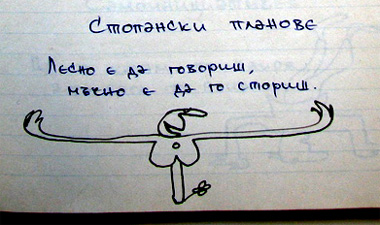 Стопански планове
Лесно е да говориш,
мъчно е да го сториш.